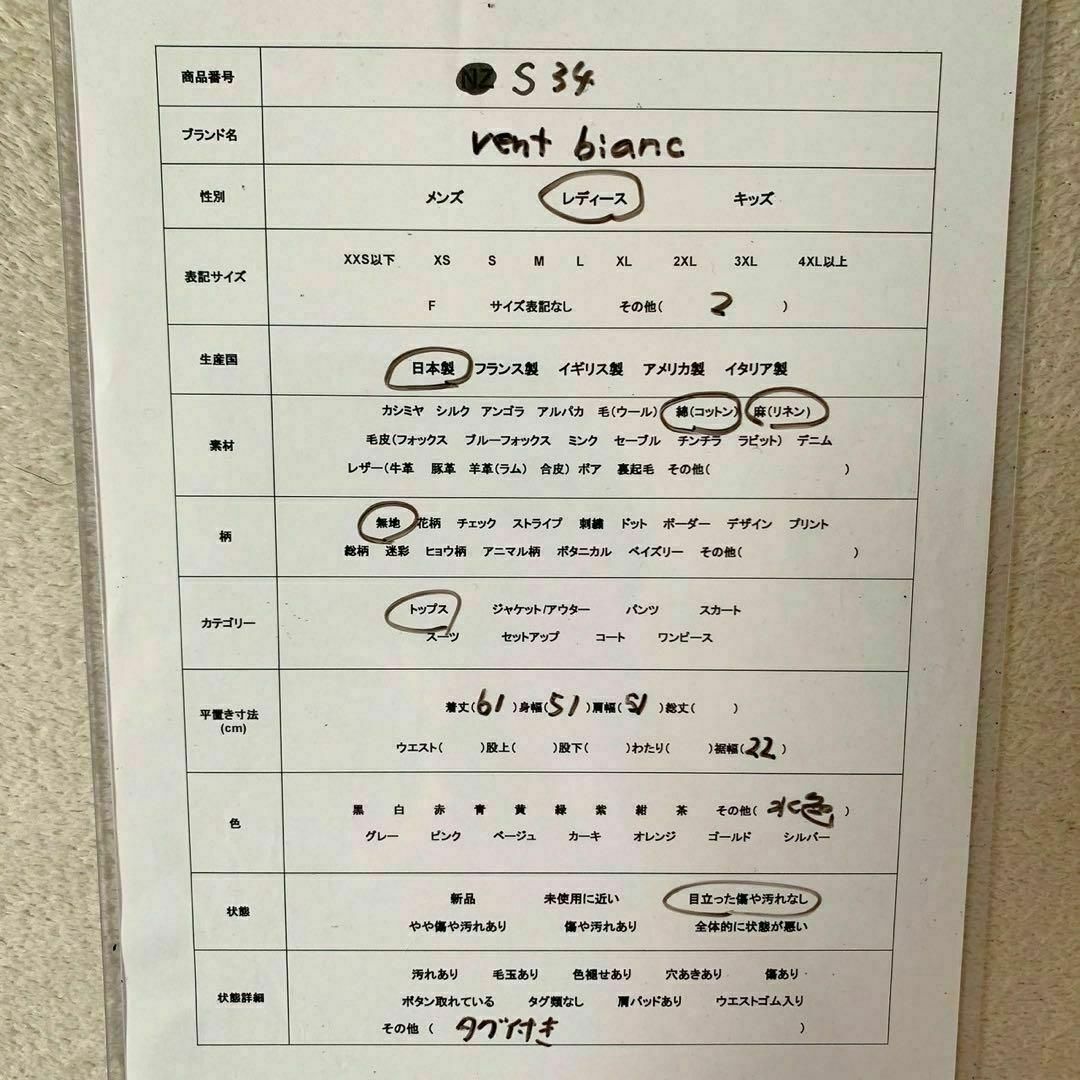 商品番号 NZ S 34
ブランド名 vent bianc
性別 メンズ レディース キッズ
XXS以下 XS S M L XL 2XL 3XL 4XL以上
表記サイズ
F サイズ表記なし その他( 2 )
生産国 日本製 フランス製 イギリス製 アメリカ製 イタリア製
カシミヤ シルク アンゴラ アルパカ 毛(ウール) 綿(コットン) 麻(リネン)
素材 毛皮(フォックス ブルーフォックス ミンク セーブル チンチラ ラビット) デニム
レザー(牛革 豚革 羊革(ラム) 合皮) ボア 裏起毛 その他( )
柄 無地 花柄 チェック ストライプ 刺繍 ドット ボーダー デザイン プリント
総柄 迷彩 ヒョウ柄 アニマル柄 ボタニカル ペイズリー その他( )
カテゴリー トップス ジャケット/アウター パンツ スカート
スーツ セットアップ コート ワンピース
平置き寸法 着丈(61)身幅(51)肩幅(51)総丈( )
(cm) ウエスト( )股上( )股下( )わたり( )裾幅(22)
色 黒 白 赤 青 黄 緑 紫 紺 茶 その他(水色)
グレー ピンク ベージュ カーキ オレンジ ゴールド シルバー
状態 新品 未使用に近い 目立った傷や汚れなし
やや傷や汚れあり 傷や汚れあり 全体的に状態が悪い
状態詳細 汚れあり 毛玉あり 色褪せあり 穴あきあり 傷あり
ボタン取れている タグ類なし 肩パッドあり ウエストゴム入り
その他 ( タグ付き )